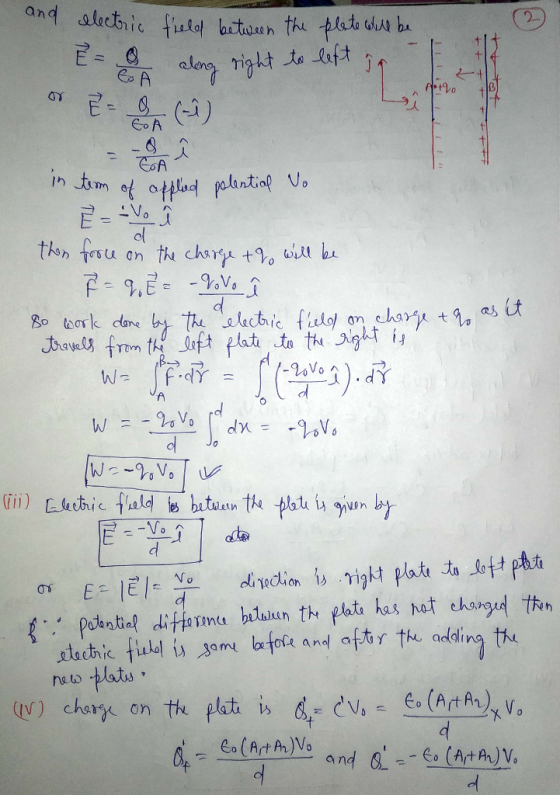 and electric field between the plate will be
(2)
E⃗ = Q/ε₀A along right to left
or E⃗ = Q/ε₀A (-î)
= -Q/ε₀A î
in term of applied potential V₀
E⃗ = -V₀/d î
then force on the charge +q₀ will be
F⃗ = q₀E⃗ = -q₀V₀/d î
So work done by the electric field on charge +q₀ as it
travels from the left plate to the right is
W = ∫_A^B F⃗·dr⃗ = ∫_0^d (-q₀V₀/d î)·dr⃗
W = -q₀V₀/d ∫_0^d dx = -q₀V₀
W = -q₀V₀ ✓
(iii) Electric field between the plate is given by
E⃗ = -V₀/d î
or E = |E⃗| = V₀/d direction is right plate to left plate
∵ potential difference between the plate has not changed then
electric field is same before and after the adding the
new plates.
(iv) charge on the plate is Q'₊ = C'V₀ = ε₀(A₁+A₂)/d × V₀
Q'₊ = ε₀(A₁+A₂)V₀/d and Q'₋ = -ε₀(A₁+A₂)V₀/d
ĵ
î
A +q₀
B